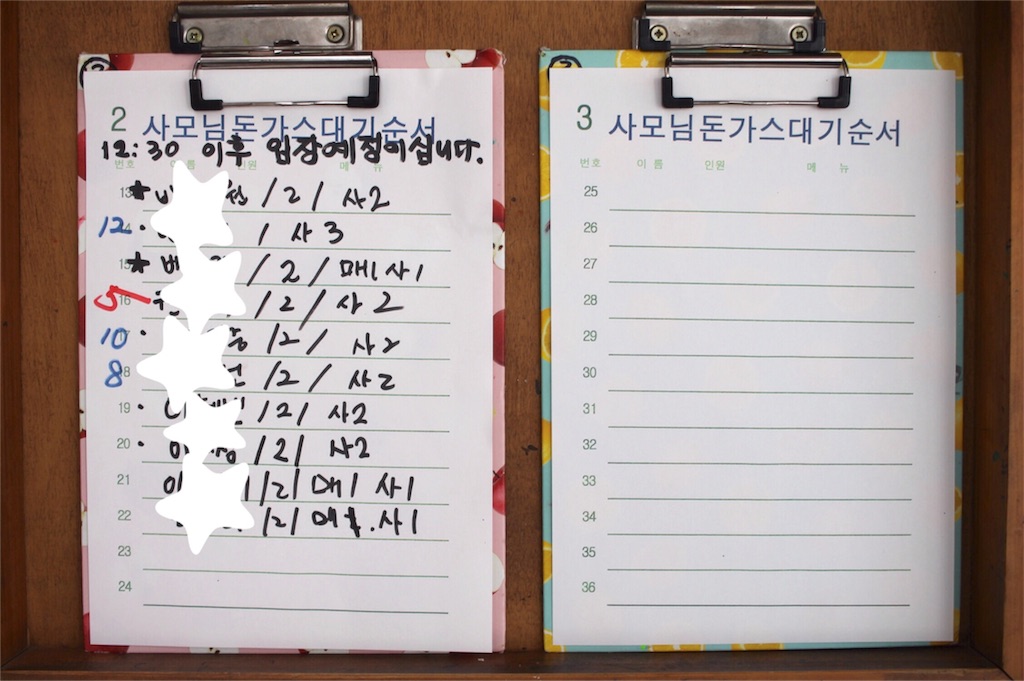 2 사모님돈가스대기순서
12:30 이후 입장예정이십니다.
번호 이름 인원 메뉴
13 ★ /2/ 사2
12 · / 사3
15 ★ 배 /2/ 매1 사1
5 16 · /2/ 사2
10 · /2/ 사2
8 /2/ 사2
19 · /2/ 사2
20 · 이 /2/ 사2
21 이 /2/ 매1 사1
22 /2/ 사1
23
24
3 사모님돈가스대기순서
번호 이름 인원 메뉴
25
26
27
28
29
30
31
32
33
34
35
36